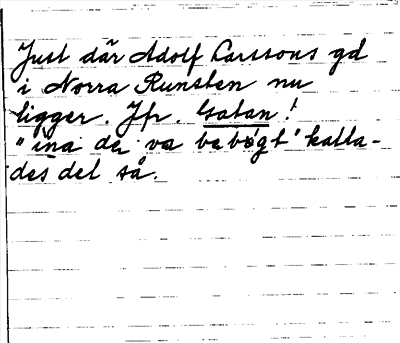 Just där Adolf Carssons gd
i Norra Runsten nu
ligger. Jfr. Gatan!
"ina de va bebögt" kalla-
des det så.